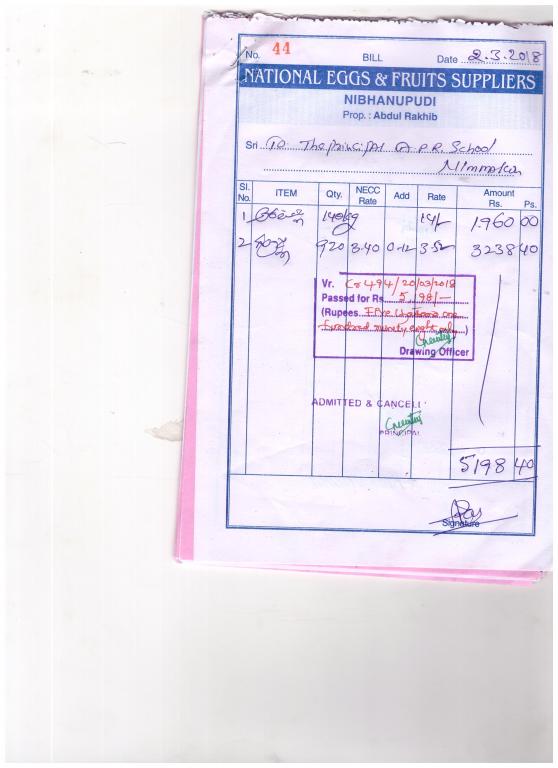 No. 44 BILL Date 2.3.2018
NATIONAL EGGS & FRUITS SUPPLIERS
NIBHANUPUDI
Prop. : Abdul Rakhib
Sri To The Principal A.P.R. School
Nimmakur
Sl. No. ITEM Qty. NECC Rate Add Rate Amount Rs. Ps.
1 140 kg 14/- 1960 00
2 920 3.40 0.12 3.52 3238 40
Vr. Cr 494/20/03/2018
Passed for Rs. 5198/-
(Rupees Five thousand one
hundred ninety eight only)
Drawing Officer
ADMITTED & CANCELL
PRINCIPAL
5198 40
Signature